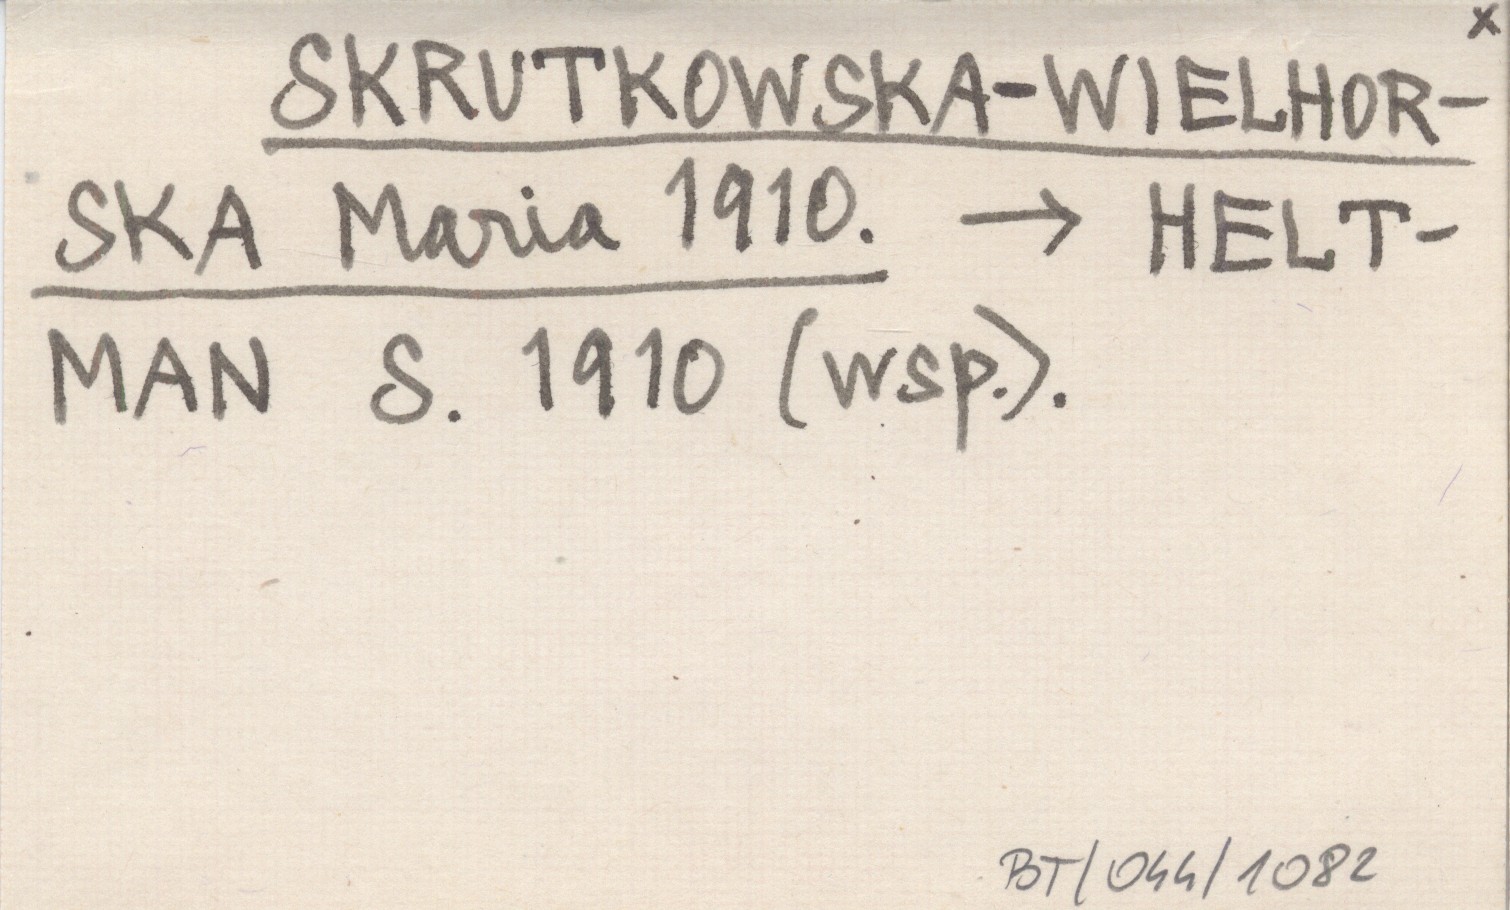 x
SKRUTKOWSKA-WIELHOR-
SKA Maria 1910. → HELT-
MAN S. 1910 (wsp.).
BT/044/1082